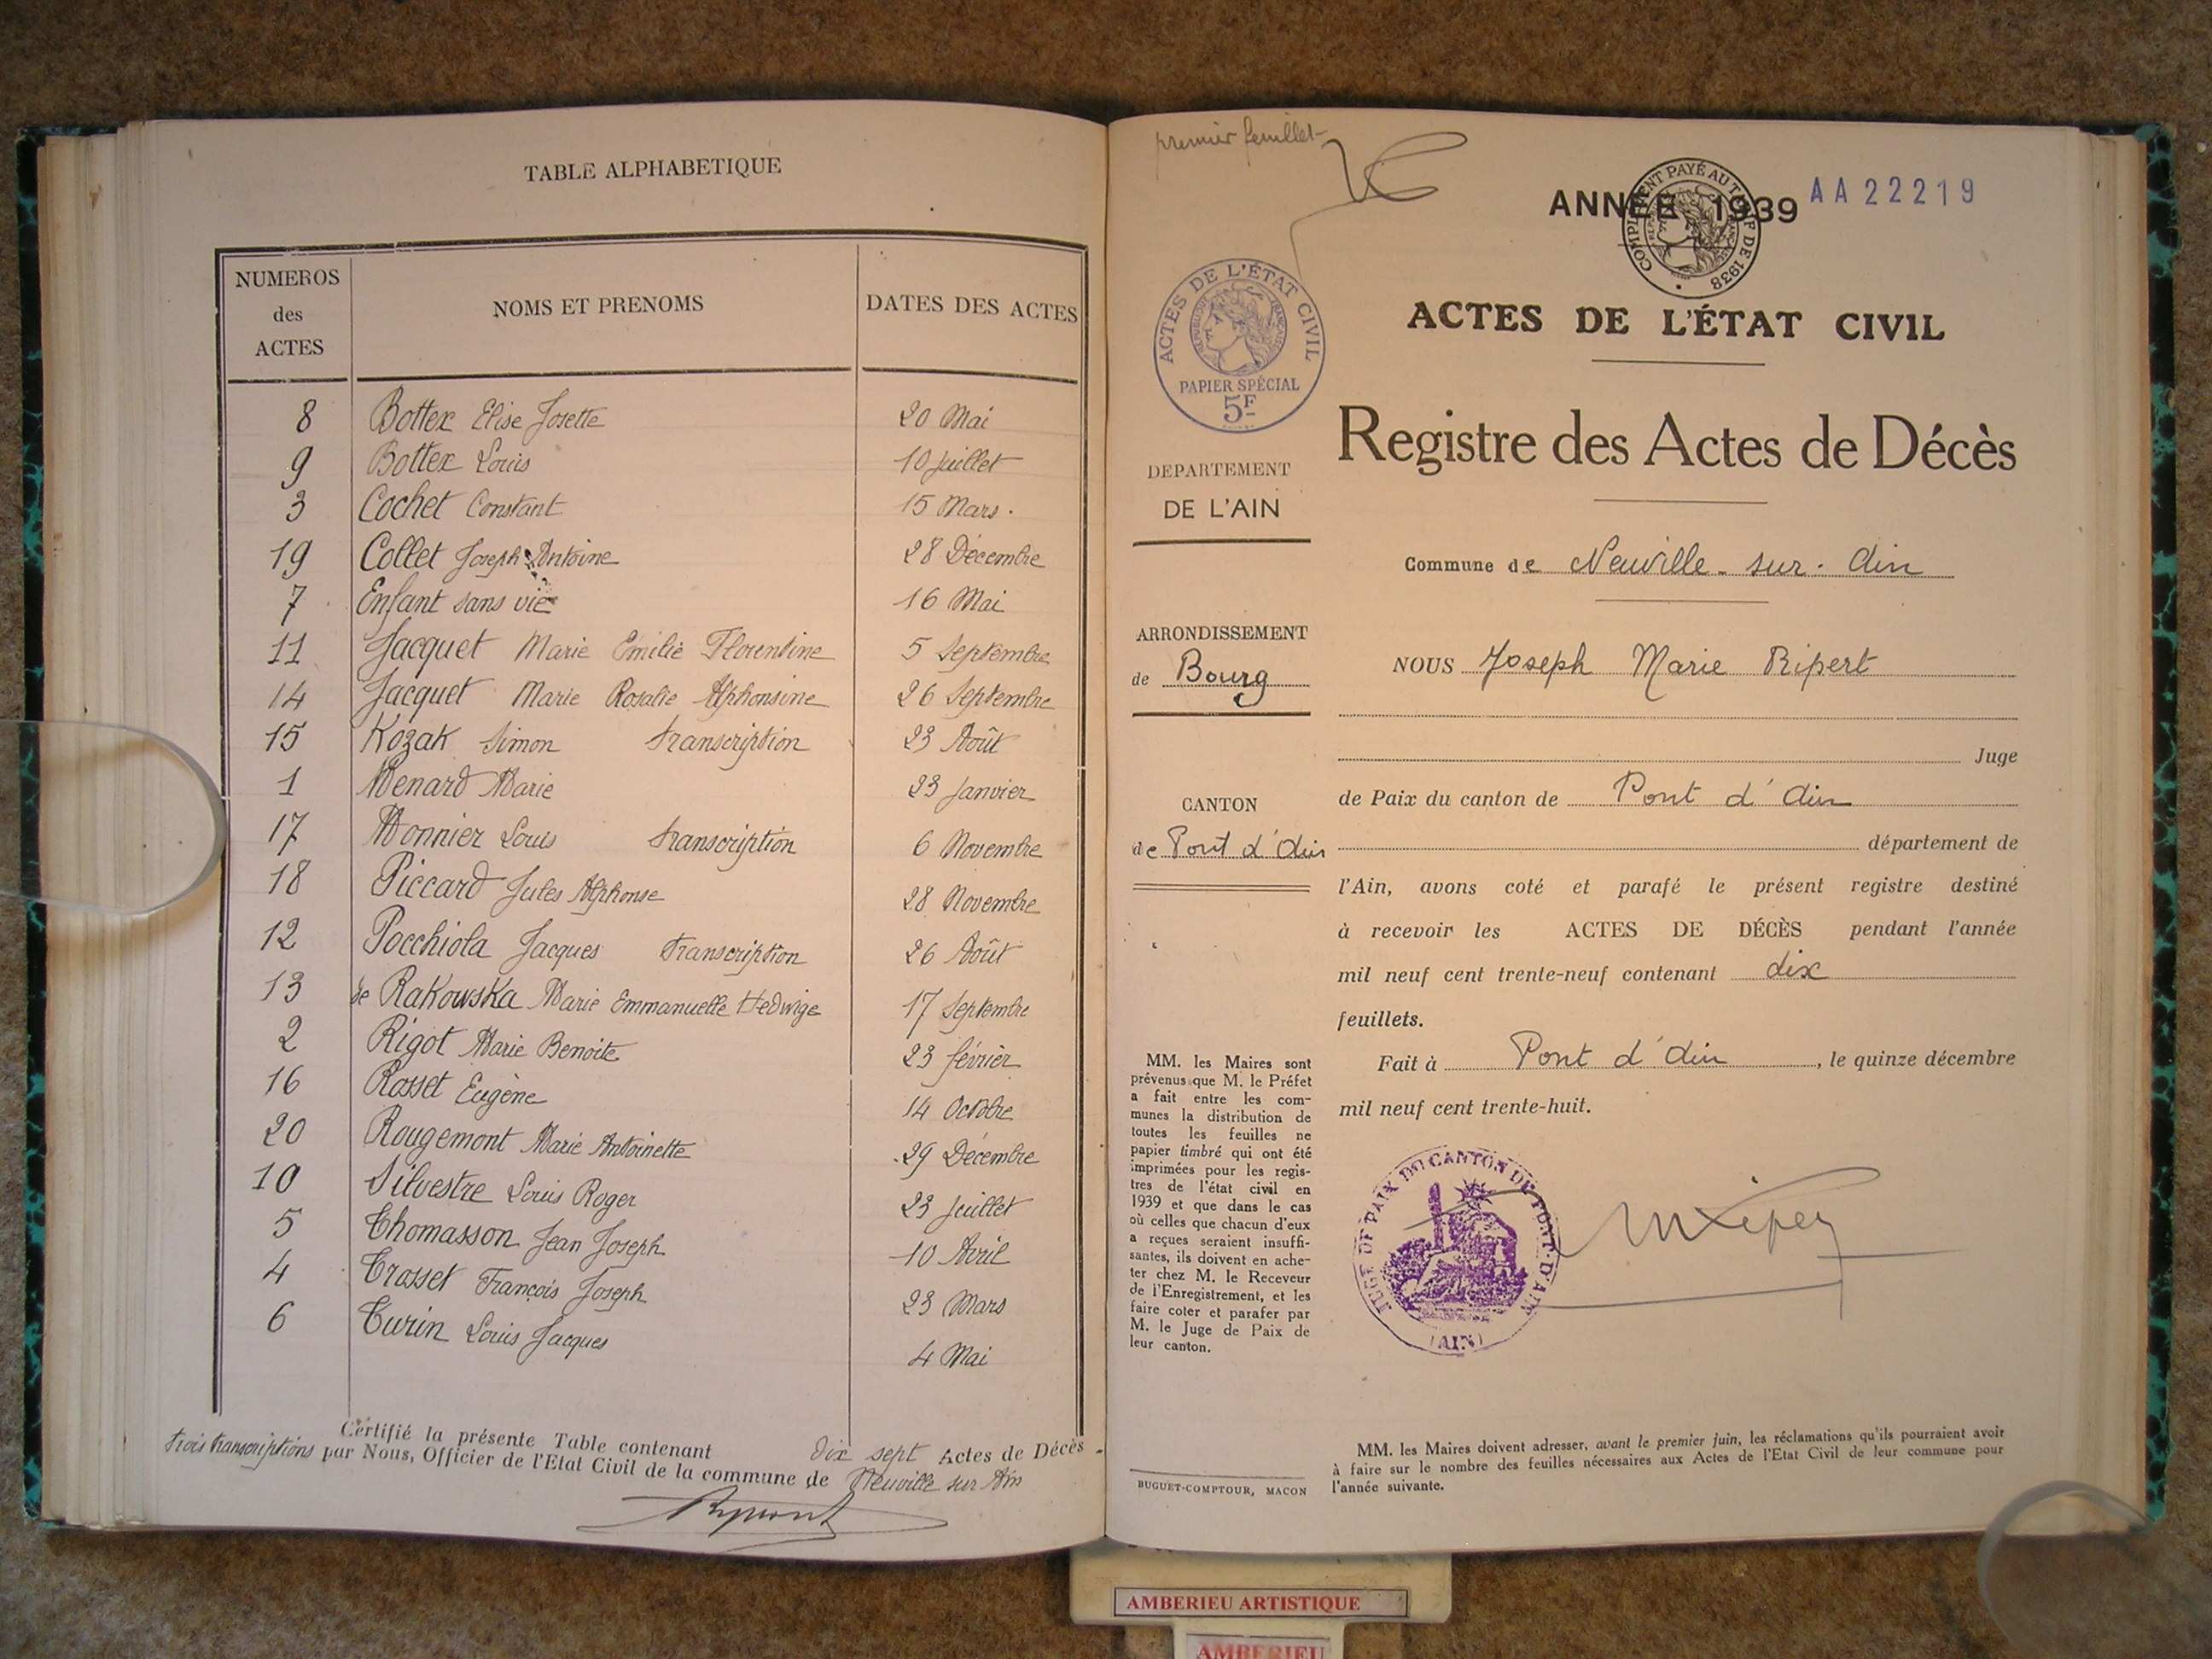 TABLE ALPHABETIQUE
NUMEROS des ACTES
NOMS ET PRENOMS
DATES DES ACTES
8 Bottex Elise Josette 20 Mai
9 Bottex Louis 10 Juillet
3 Cochet Constant 15 Mars.
19 Collet Joseph Antoine 28 Décembre
7 Enfant sans vie 16 Mai
11 Jacquet Marie Emilie Florentine 5 Septembre
14 Jacquet Marie Rosalie Alphonsine 26 Septembre
15 Kozak Simon transcription 23 Août
1 Menard Marie 23 Janvier
17 Monnier Louis transcription 6 Novembre
18 Piccard Jules Alphonse 28 Novembre
12 Pocchiola Jacques transcription 26 Août
13 de Rakowska Marie Emmanuelle Hedwige 17 Septembre
2 Rigot Marie Benoite 23 février
16 Rosset Eugène 14 Octobre
20 Rougemont Marie Antoinette 29 Décembre
10 Silvestre Louis Roger 23 Juillet
5 Thomasson Jean Joseph 10 Avril
4 Trosset François Joseph 23 Mars
6 Turin Louis Jacques 4 Mai
Certifié la présente Table contenant dix sept Actes de Décès
trois transcriptions par Nous, Officier de l'Etat Civil de la commune de Neuville sur Ain
premier feuillet
ANNÉE 1939
AA 22219
COMPLÉMENT PAYÉ AU TARIF DE 1938
ACTES DE L'ÉTAT CIVIL
RÉPUBLIQUE FRANÇAISE
PAPIER SPÉCIAL
5F
ACTES DE L'ÉTAT CIVIL
Registre des Actes de Décès
DEPARTEMENT
DE L'AIN
Commune de Neuville-sur-Ain
ARRONDISSEMENT
de Bourg
NOUS Joseph Marie Ripert
Juge
CANTON
de Pont d'Ain
de Paix du canton de Pont d'Ain
département de
l'Ain, avons coté et parafé le présent registre destiné
à recevoir les ACTES DE DÉCÈS pendant l'année
mil neuf cent trente-neuf contenant dix
feuillets.
Fait à Pont d'Ain, le quinze décembre
mil neuf cent trente-huit.
MM. les Maires sont
prévenus que M. le Préfet
a fait entre les com-
munes la distribution de
toutes les feuilles ne
papier timbré qui ont été
imprimées pour les regis-
tres de l'état civil en
1939 et que dans le cas
où celles que chacun d'eux
a reçues seraient insuffi-
santes, ils doivent en ache-
ter chez M. le Receveur
de l'Enregistrement, et les
faire coter et parafer par
M. le Juge de Paix de
leur canton.
JUGE DE PAIX DU CANTON DE PONT-D'AIN
(AIN)
BUGUET-COMPTOUR, MACON
MM. les Maires doivent adresser, avant le premier juin, les réclamations qu'ils pourraient avoir
à faire sur le nombre des feuilles nécessaires aux Actes de l'Etat Civil de leur commune pour
l'année suivante.
AMBERIEU ARTISTIQUE
AMBERIEU